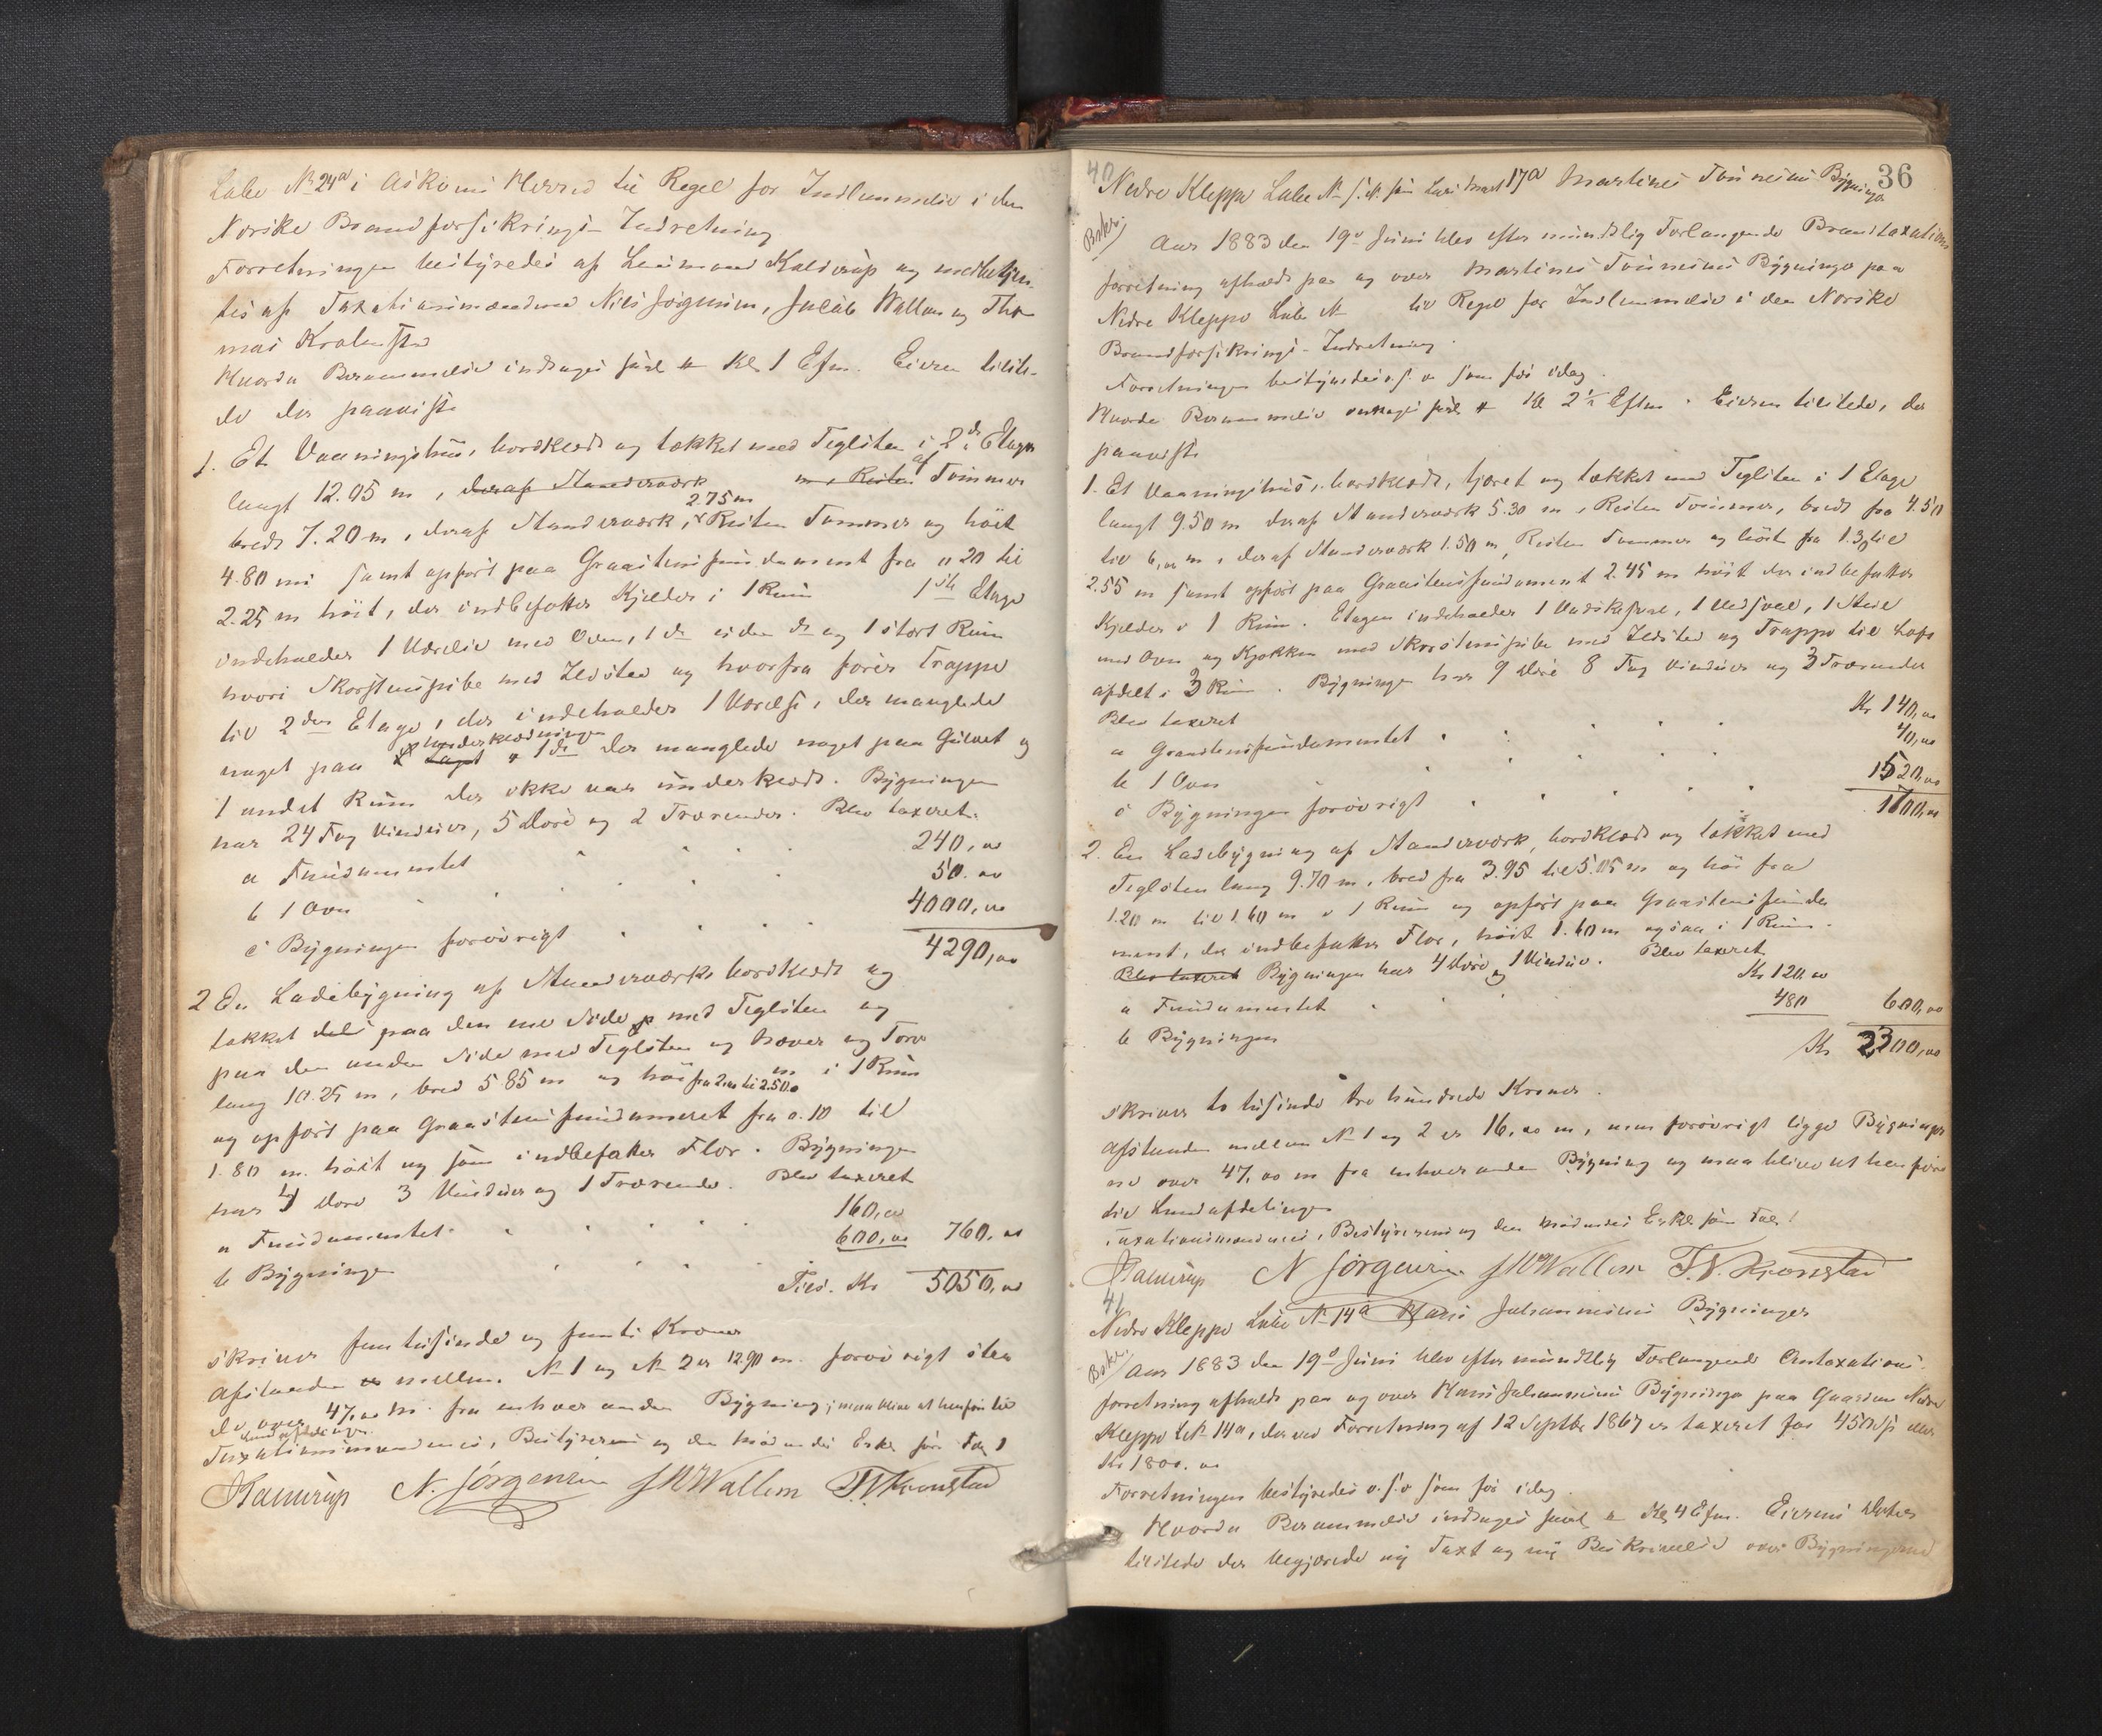 Løbe No 24a i Askøens Herred til Regel for Indlemmelse i den
Norske Brandforsikrings-Indretning
Forretningen bestyredes af Lensmand Kalderup og medbetjen-
tes af Taxationsmændene Nils Jørgensen, Jakob Wallem og Tho-
mas Kronstad
Hvorda Berammelse indtages saal. Kl 1 Efm. Eieren tilste-
de der paaviste
1. Et Vaaningshus, bordklædt og tækket med Teglsten i 2de Etager
langt 12.05 m, deraf Standerværk m, Resten af Tømmer
bredt 7.20 m, deraf Standerværk 2.75 m, Resten Tømmer og høit
4.80 m samt opført paa Graastensfundament fra 0 20 til
2.25 m høit, der indbefatter Kjelder i 1 Rum 1ste Etage
indeholder 1 Værelse med Oven, 1 do uden do og 1 stort Rum
hvori Skorstenspibe med Ildsted og hvorfra fører Trappe
til 2den Etage, der indeholder 1 Værelse, der manglede
noget paa Underklædningen 1 do der manglede noget paa Gulvet og
1 andet Rum der ikke var underklædt. Bygningen
har 24 Fag Vinduer, 5 Døre og 2 Trærender. Blev taxeret
a Fundamentet 240,00
b 1 Oven 50.00
c Bygningen forøvrigt 4000,00
4290,00
2 En Ladebygning af Standerværk bordklædt og
tækket dels paa den ene Side med Teglsten og
paa den anden Side med Teglsten og Næver og Torv
lang 10.25 m, bred 5.85 m og høi fra 2.00 til 2.50 m i 1 Rum
og opført paa Graastensfundament fra 0.10 til
1.80 m. høit og som indbefatter Flor. Bygningen
har 4 Døre 3 Vinduer og 1 Trærende. Blev taxeret
a Fundamentet 160,00
b Bygningen 600,00 760,00
Tils. Kr 5050,00
skriver femtusinde og femti Kroner
Afstanden mellem No 1 og No 2 er 12.90 m. forøvrigt ste
de over 47,00 m. fra enhver anden Bygning, maa blive at henføre til
Landafdelingen.
Taxationsmændenes, Bestyrerens og den Mødendes Erkl. som Fol. 1
Kalderup N. Jørgensen J M Wallem T. N. Kronstad
40
36
Nedre Kleppe Løbe No s. A. fra Løbe No 17a Martines Tønnesens Bygninger
Bskr.
Aar 1883 den 19de Juni blev efter mundtlig Forlangende Brandtaxations
forretning afholdt paa og over Martines Tønnesens Bygninger paa
Nedre Kleppe Løbe No til Regel for Indlemmelse i den Norske
Brandforsikrings-Indretning.
Forretningen bestyredes o. s. v som før idag.
Hvorda Berammelse indtages saal. Kl 2½ Eftm. Eieren tilstede, der
paaviste
1. Et Vaaningshus, bordklædt, tjæret og tækket med Teglsten i 1 Etage
langt 9.50 m deraf Standerværk 5.30 m, Resten Tømmer, bredt fra 4.50
til 6,00 m, deraf Standerværk 1.50 m, Resten Tømmer og høit fra 1.30 til
2.55 m samt opført paa Graastensfundament 2.45 m høit der indbefatter
Kjelder i 1 Rum. Etagen indeholder 1 Vadskesval, 1 Vedsval, 1 Stue
med Oven og Kjøkken med Skorstenspibe med Ildsted og Trappe til Loft
afdelt i 3 Rum. Bygningen har 9 Døre 8 Fag Vinduer og 3 Trærender
Blev taxeret
a Graastensfundamentet Kr 140,00
b 1 Oven 40,00
c Bygningen forøvrigt 1520,00
1700,00
2. En Ladebygning af Standerværk, bordklædt og tækket med
Teglsten lang 9.70 m, bred fra 3.95 til 5.05 m og høi fra
1.20 m til 1.60 m i 1 Rum og opført paa Graastensfunda
ment, der indbefatter Flor, høit 1.60 m ogsaa i 1 Rum.
Blev taxeret Bygningen har 4 Døre og 1 Vindue. Blev taxeret
a Fundamentet Kr 120 00
b Bygningen 480 600,00
Kr 2300,00
skriver to tusinde tre hundrede Kroner.
Afstanden mellem No 1 og 2 er 16,00 m, men forøvrigt ligge Bygninger
ne over 47,00 m fra enhver anden Bygning og maa blive at henføre
til Landafdelingen
Taxationsmændenes, Bestyrerens og den Mødendes Erkl. som Fol. 1
Kalderup N Jørgensen J M Wallem T. N. Kronstad
41
Nedre Kleppe Løbe No 14a Hans Johannesens Bygninger
Bskr.
Aar 1883 den 19de Juni blev efter mundtlig Forlangende Omtaxations-
forretning afholdt paa og over Hans Johannesens Bygninger paa Gaarden Nedre
Kleppe LNo 14a, der ved Forretning af 12 Septbr 1867 er taxeret for 450 Sp eller
Kr 1800.00
Forretningen bestyredes o. s. v som før idag.
Hvorda Berammelse indtages saal. Kl 4 Efm. Eierens Datter
tilstede der begjærede ny Taxt og ny Beskrivelse over Bygningerne